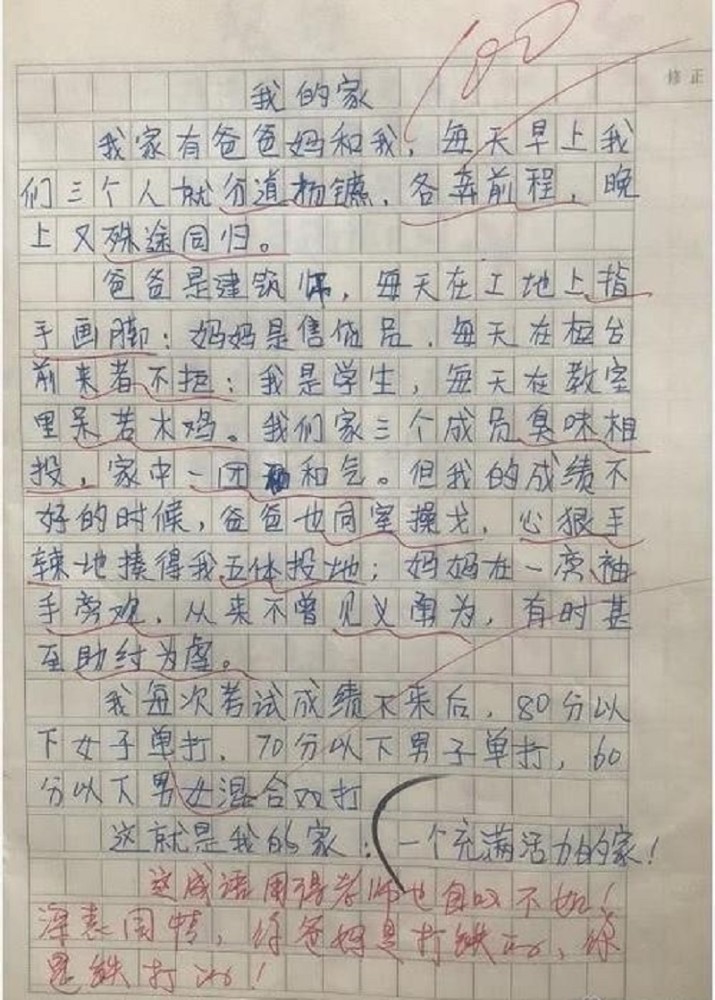 100
修正
我的家
我家有爸爸妈和我，每天早上我
们三个人就分道扬镳，各奔前程，晚
上又殊途同归。
爸爸是建筑师，每天在工地上指
手画脚；妈妈是售货员，每天在柜台
前来者不拒；我是学生，每天在教室
里呆若木鸡。我们家三个成员臭味相
投，家中一团和气。但我的成绩不
好的时候，爸爸也同室操戈，心狠手
辣地揍得我五体投地；妈妈在一旁袖
手旁观，从来不曾见义勇为，有时甚
至助纣为虐。
我每次考试成绩下来后，80分以
下女子单打，70分以下男子单打，60
分以下男女混合双打
这就是我的家：一个充满活力的家！
这成语用得老师也自叹不如！
深表同情，你爸妈是打铁的，你
是铁打的！